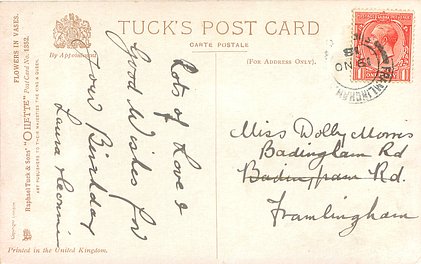 TUCK'S POST CARD
CARTE POSTALE
By Appointment
(FOR ADDRESS ONLY).
FLOWERS IN VASES.
Raphael Tuck & Sons' "OILETTE" Post Card No. 1552.
ART PUBLISHERS TO THEIR MAJESTIES THE KING & QUEEN.
Lots of Love &
Good Wishes for
your Birthday
Laura &
Printed in the United Kingdom.
FRAMLINGHAM
18
19 NO
ONE PENNY
Miss Dolly Morris
Badingham Rd
Badingham Rd.
Framlingham